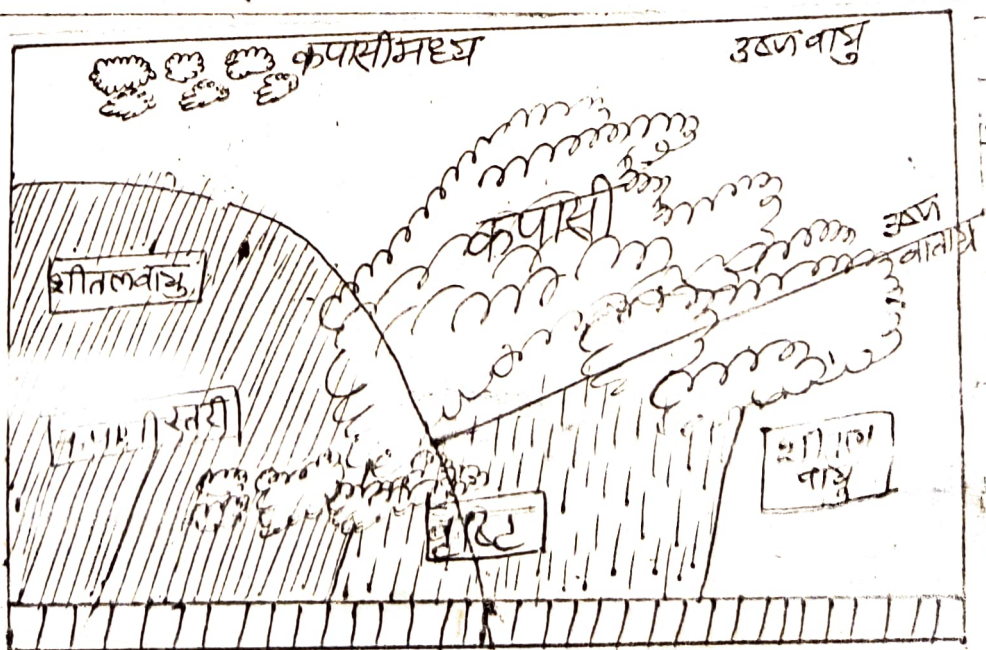 कपासीमध्य
उष्ण वायु
कपासी
उष्ण
वाताग्र
शीतलवायु
स्तरी
शीतल
वायु
वृष्टि